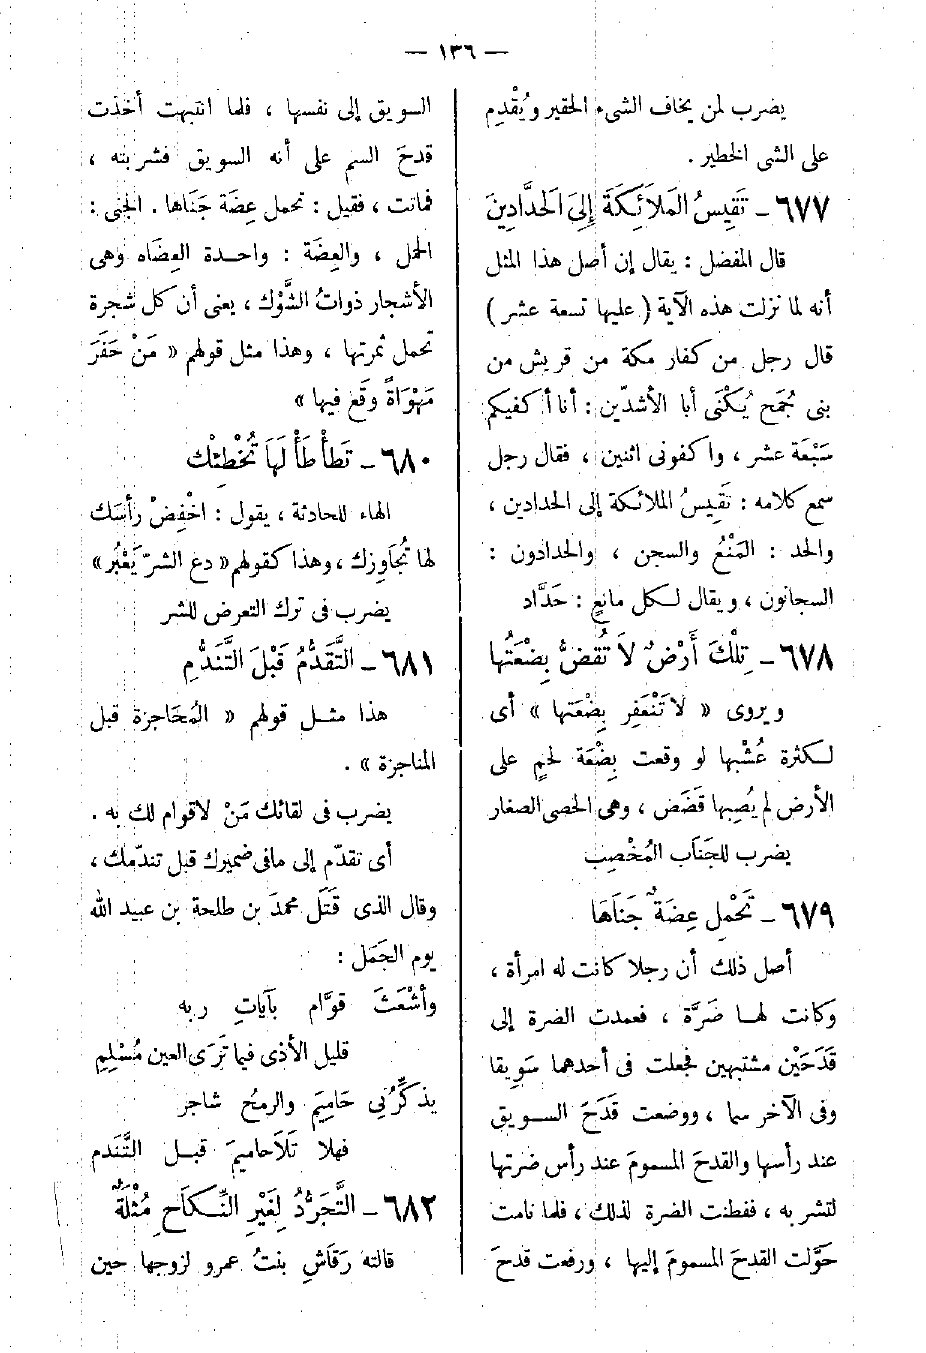 — ١٣٦ —
يضرب لمن يخاف الشيء الحقير ويُقْدِم
على الشى الخطير .
٦٧٧ – تَقِيسُ المَلاَئِكَةَ إِلَى الحَدَّادِينَ
قال المفضل : يقال إن أصل هذا المثل
أنه لما نزلت هذه الآية ( عليها تسعة عشر )
قال رجل من كفار مكة من قريش من
بنى جُمَح يُكْنَى أبا الأشدّين : أنا أكفيكم
سَبْعَة عشر ، واكفونى اثنين ، فقال رجل
سمع كلامه : تَقِيسُ الملائكة إلى الحدادين ،
والحد : المَنْعُ والسجن ، والحدادون :
السجانون ، ويقال لكل مانع : حَدَّاد
٦٧٨ – تِلْكَ أَرْضٌ لاَ تُقِضُّ بِضْعَتُها
ويروى « لا تَنْعَفِر بِضْعَتها » أى
لكثرة عُشْبها لو وقعت بِضْعَة لحمٍ على
الأرض لم يُصِبها قَضَض ، وهى الحصى الصغار
يضرب للجَنَاب المُخْصِب
٦٧٩ – تَحْمِل عِضَةٌ جَنَاهَا
أصل ذلك أن رجلا كانت له امرأة ،
وكانت لها ضَرَّة ، فعمدت الضرة إلى
قَدَحَيْن مشتبهين فجعلت فى أحدهما سَوِيقا
وفى الآخر سما ، ووضعت قَدَحَ السويق
عند رأسها والقدحَ المسمومَ عند رأس ضرتها
لتشربه ، ففطنت الضرة لذلك ، فلما نامت
حَوَّلت القدحَ المسمومَ إليها ، ورفعت قدحَ
السويق إلى نفسها ، فلما انتبهت أخذت
قدحَ السم على أنه السويق فشربته ،
فماتت ، فقيل : تحمل عِضَة جَنَاها . الجَنى :
الحمل ، والعِضَة : واحدة العِضَاه وهى
الأشجار ذواتُ الشَّوْك ، يعنى أن كل شجرة
تحمل ثمرتها ، وهذا مثل قولهم « مَنْ حَفَرَ
مَهْوَاةً وَقَع فيها »
٦٨٠ – تَطَأْطَأْ لَهَا تُخْطِئْك
الهاء للحادثة ، يقول : اخْفِضْ رأسَك
لها تُجَاوِزك ، وهذا كقولهم « دع الشرّ يَعْبُر »
يضرب فى ترك التعرض للشر
٦٨١ – التَّقَدُّمُ قَبْلَ التَّنَدُّمِ
هذا مثل قولهم « المُحَاجزة قبل
المناجزة » .
يضرب فى لقائك مَنْ لا قوام لك به .
أى تقدّم إلى ما فى ضميرك قبل تندّمك ،
وقال الذى قَتَل محمدَ بن طلحة بن عبيد الله
يوم الجَمَل :
وأشْعَثَ قوَّام بآيَاتِ ربه
قليل الأذى فيما تَرَى العين مُسْلِمِ
يذكِّرُنِى حَامِيمَ والرمحُ شاجر
فهلا تَلاَ حاميمَ قبل التَّنَدم
٦٨٢ – التَّجَرُّدُ لِغَيْرِ النِّكَاحِ مُثْلَةٌ
قالته رَقَاشِ بنتُ عمرو لزوجها حين